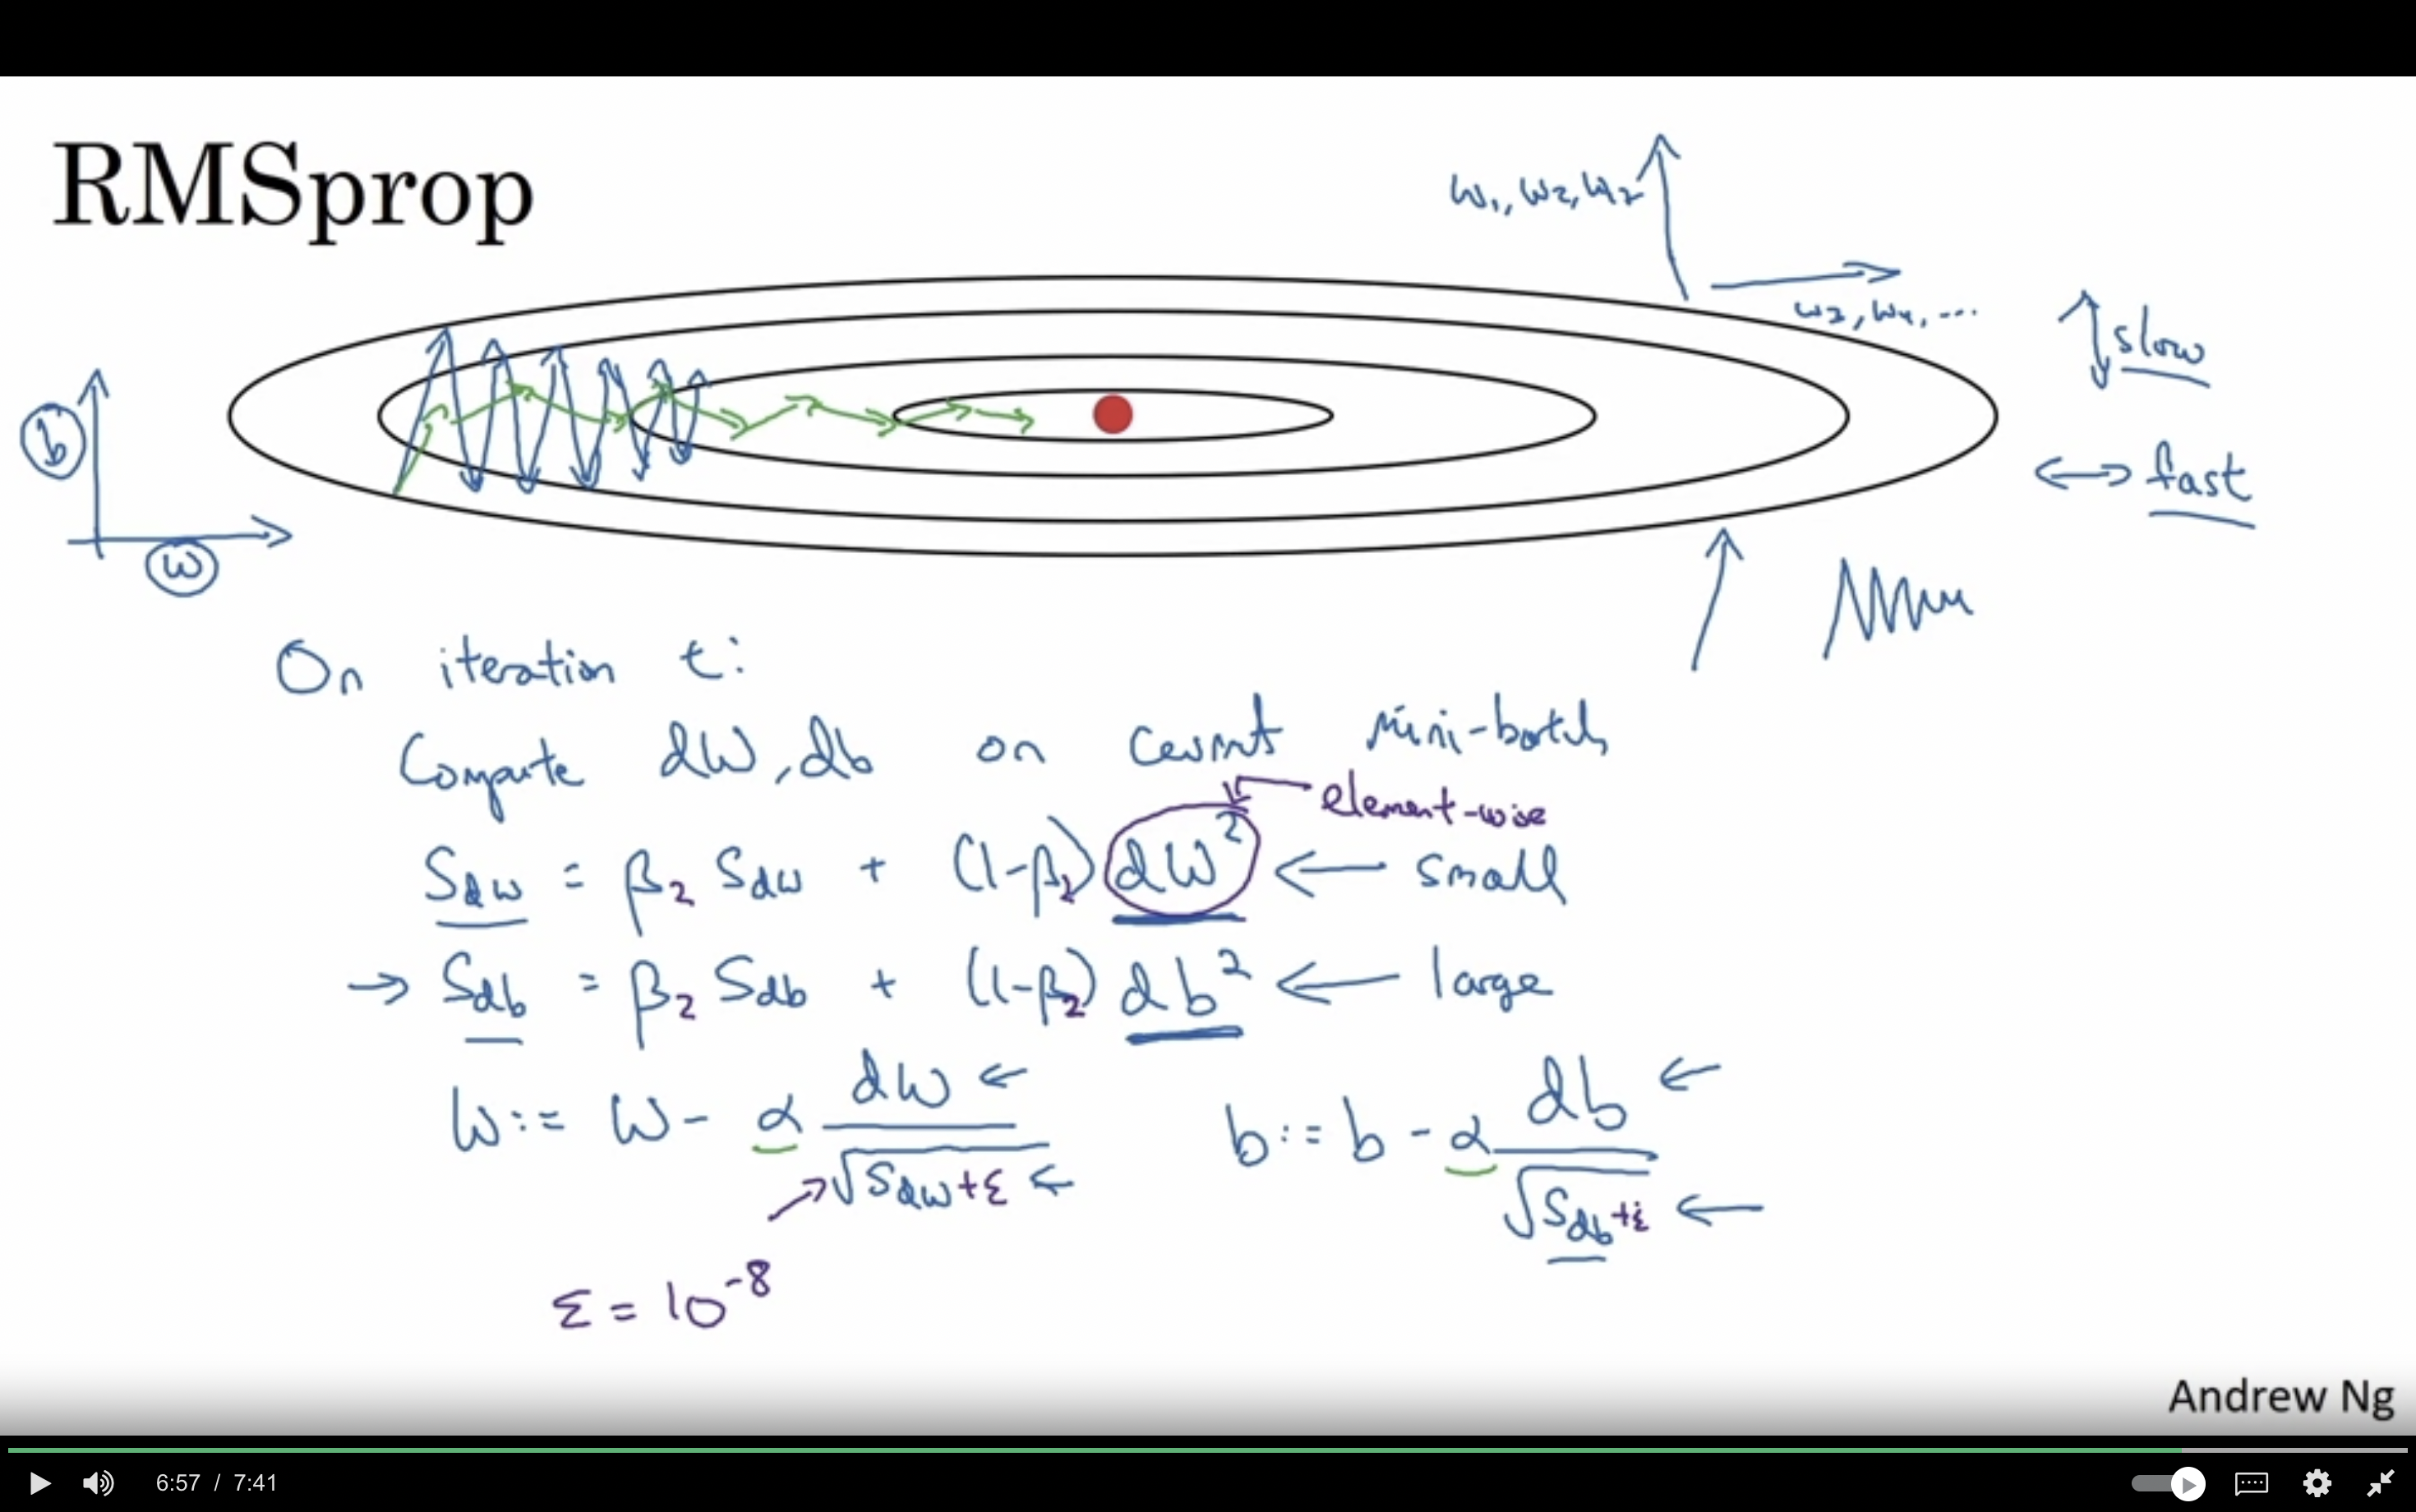 RMSprop
w₁, w₂, w₂
w₃, w₄, ...
slow
b
fast
w
On iteration t:
Compute dW, db on current mini-batch
element-wise
S_dw = β₂ S_dw + (1-β₂) dW² ← small
→ S_db = β₂ S_db + (1-β₂) db² ← large
W := W - α dW / √(S_dw + ε) ← b := b - α db / √(S_db + ε) ←
ε = 10⁻⁸
Andrew Ng
6:57 / 7:41